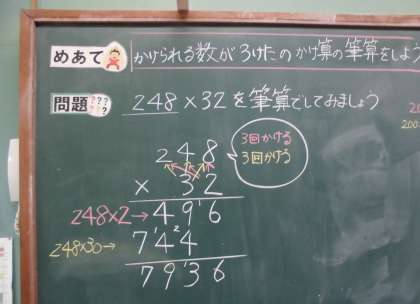 めあて かけられる数が3けたのかけ算の筆算をしよう
問題 248×32を筆算でしてみましょう
248
3回かける
3回かける
× 32
248×2→ 496
248×30→ 744
7936